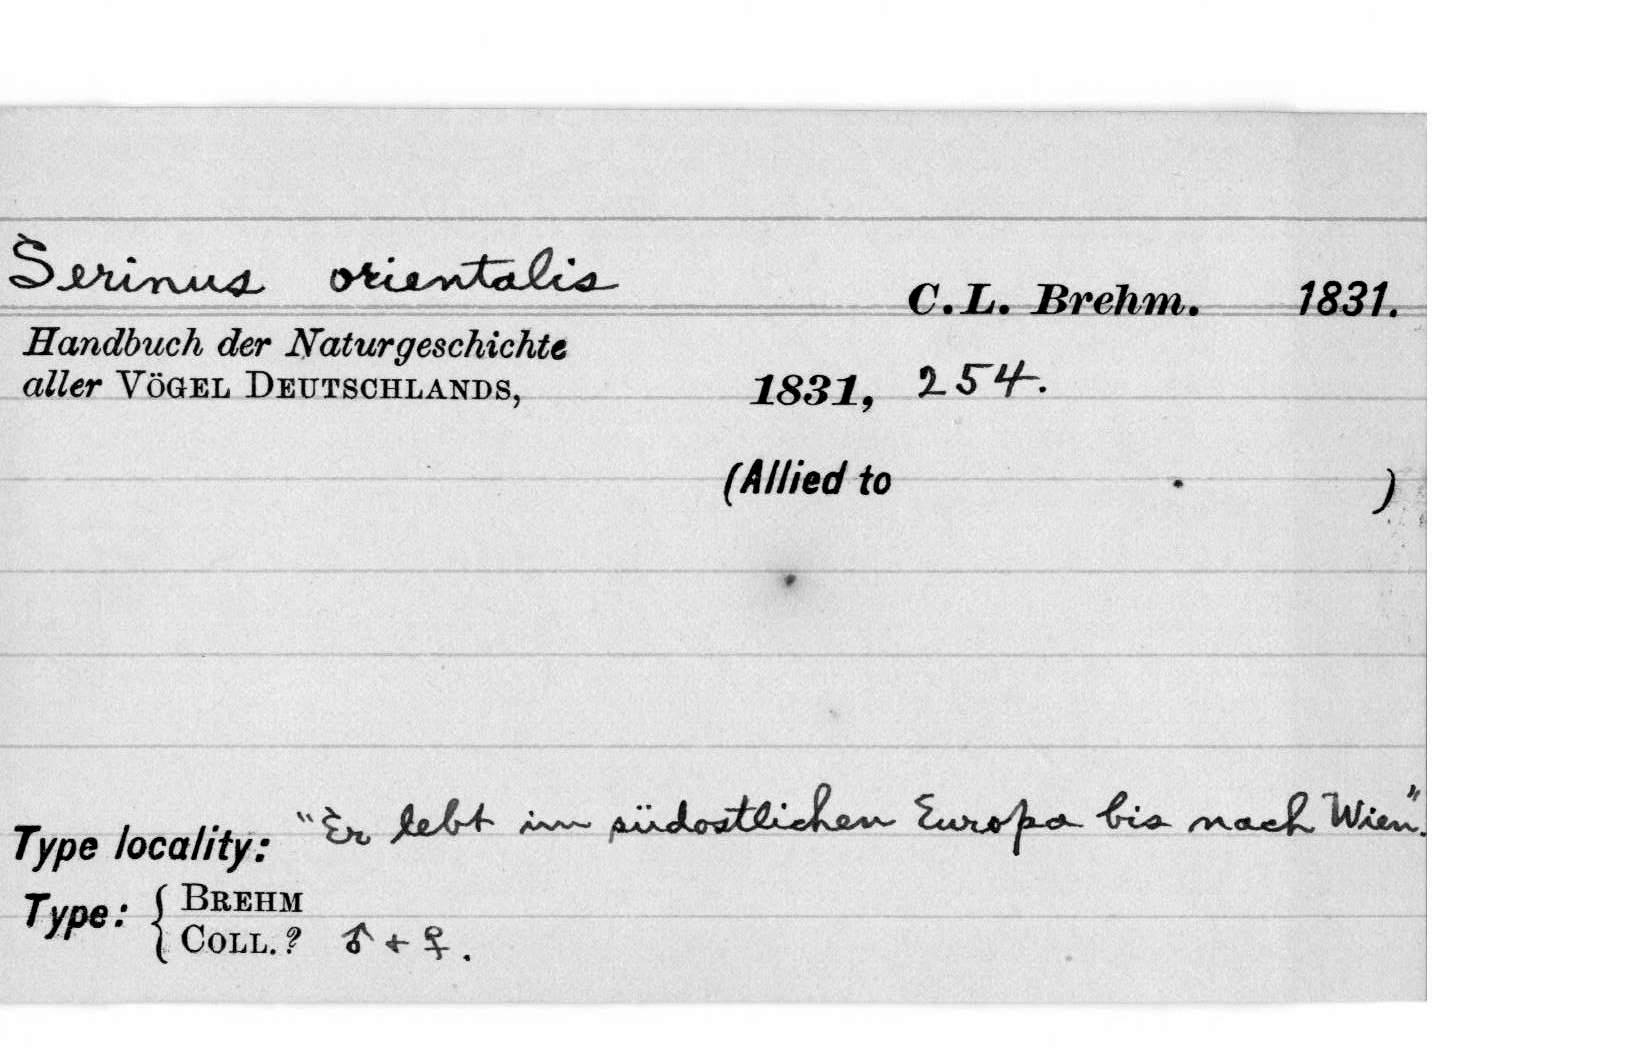 Serinus orientalis C. L. Brehm. 1831.
Handbuch der Naturgeschichte
aller VÖGEL DEUTSCHLANDS, 1831, 254.
(Allied to . )
Type locality: "Er lebt im südostlichen Europa bis nach Wien".
Type: { BREHM
COLL. ? ♂ + ♀.